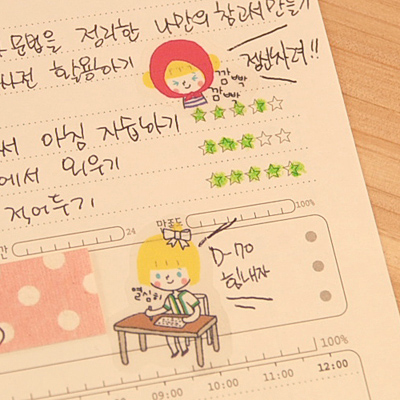 문법을 정리한 나만의 참고서 만들기
사전 활용하기
정신차려!!
깜빡
깜빡
서 아침 자습하기
에서 외우기
적어두기
만족도
간
24
100%
D-70
힘내자
열심히
100%
09:00 10:00 11:00 12:00